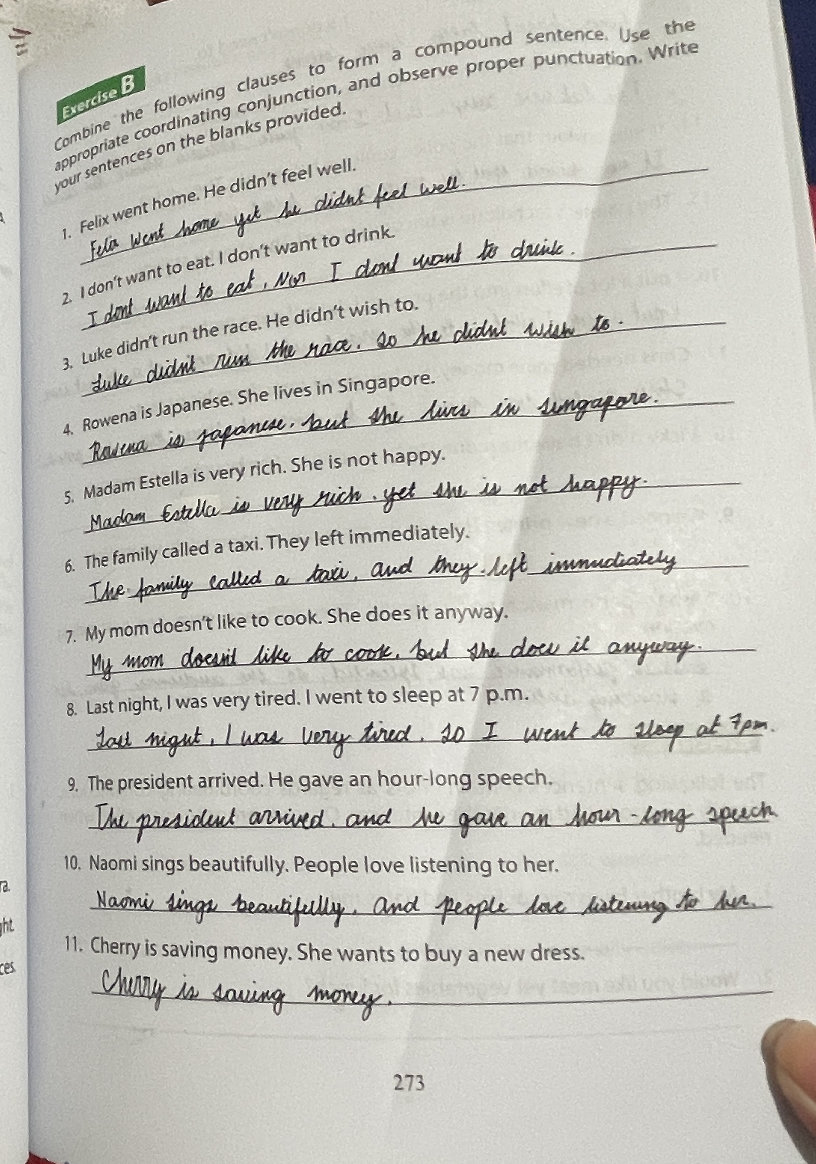 Exercise B
Combine the following clauses to form a compound sentence. Use the
appropriate coordinating conjunction, and observe proper punctuation. Write
your sentences on the blanks provided.
1. Felix went home. He didn't feel well.
Felix went home yet he didnt feel well.
2. I don't want to eat. I don't want to drink.
I dont want to eat, Nor I dont want to drink.
3. Luke didn't run the race. He didn't wish to.
Luke didn't run the race, so he didnt wish to.
4. Rowena is Japanese. She lives in Singapore.
Rowena is japanese, but she lives in singapore.
5. Madam Estella is very rich. She is not happy.
Madam Estella is very rich, yet she is not happy.
6. The family called a taxi. They left immediately.
The family called a taxi, and they left immediately
7. My mom doesn't like to cook. She does it anyway.
My mom doesn't like to cook, but she does it anyway.
8. Last night, I was very tired. I went to sleep at 7 p.m.
Last night, I was very tired, so I went to sleep at 7pm.
9. The president arrived. He gave an hour-long speech.
The president arrived, and he gave an hour-long speech.
10. Naomi sings beautifully. People love listening to her.
Naomi sings beautifully, and people love listening to her.
11. Cherry is saving money. She wants to buy a new dress.
Cherry is saving money,
ra.
ght
ces
273